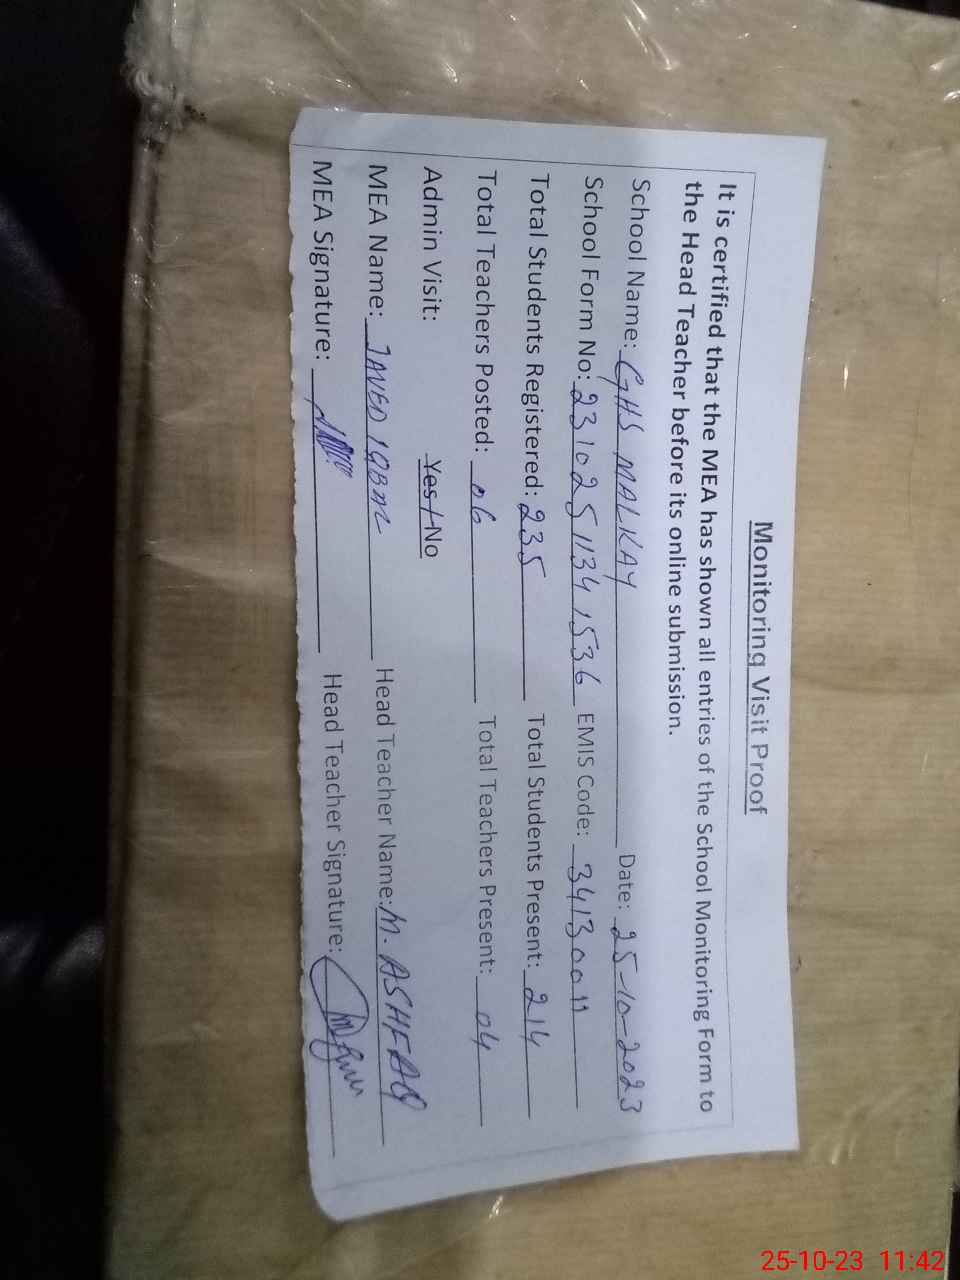 Monitoring Visit Proof
It is certified that the MEA has shown all entries of the School Monitoring Form to
the Head Teacher before its online submission.
School Name: GHS MALKAY Date: 25-10-2023
School Form No: 231025 1134 1536 EMIS Code: 34130011
Total Students Registered: 235 Total Students Present: 214
Total Teachers Posted: 06 Total Teachers Present: 04
Admin Visit: Yes / No
MEA Name: JAVED IQBAL Head Teacher Name: M. ASHFAQ
MEA Signature: Head Teacher Signature:
25-10-23 11:42